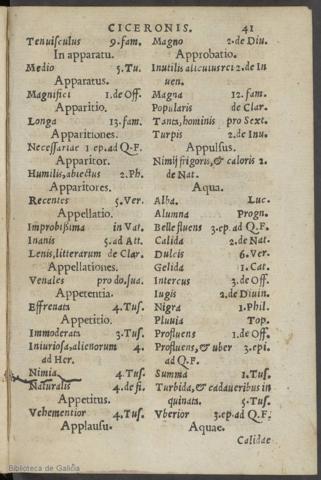 CICERONIS. 41
Tenuisculus 9.fam.
In apparatu.
Medio 5.Tu.
Apparatus.
Magnifici 1.de Off.
Apparitio.
Longa 13.fam.
Apparitiones.
Necessariæ 1 ep.ad Q.F.
Apparitor.
Humilis, abiectus 2.Ph.
Apparitores.
Recentes 5.Ver.
Appellatio.
Improbißima in Vat.
Inanis 5.ad Att.
Lenis, litterarum de Clar.
Appellationes.
Venales pro do.sua.
Appetentia.
Effrenata 4.Tus.
Appetitio.
Immoderata 3.Tus.
Iniuriosa, alienorum 4.
ad Her.
Nimia 4.Tus.
Naturalis 4.de fi.
Appetitus.
Vehementior 4.Tus.
Applausu.
Magno 2.de Diu.
Approbatio.
Inutilis alicuius rei 2.de In
uen.
Magna 12.fam.
Popularis de Clar.
Tanta, hominis pro Sext.
Turpis 2.de Inu.
Appulsus.
Nimij frigoris, & caloris 2.
de Nat.
Aqua.
Alba. Luc.
Alumna Progn.
Belle fluens 3.ep.ad Q.F.
Calida 2.de Nat.
Dulcis 6.Ver.
Gelida 1.Cat.
Intercus 3.de Off.
Iugis 2.de Diuin.
Nigra 1.Phil.
Pluuia Top.
Profluens 1.de Off.
Profluens, & uber 3.epi.
ad Q.F.
Summa 1.Tus.
Turbida, & cadaueribus in
quinata. 5.Tus.
Vberior 3.ep.ad Q.F.
Aquae.
Calidae
Biblioteca de Galicia